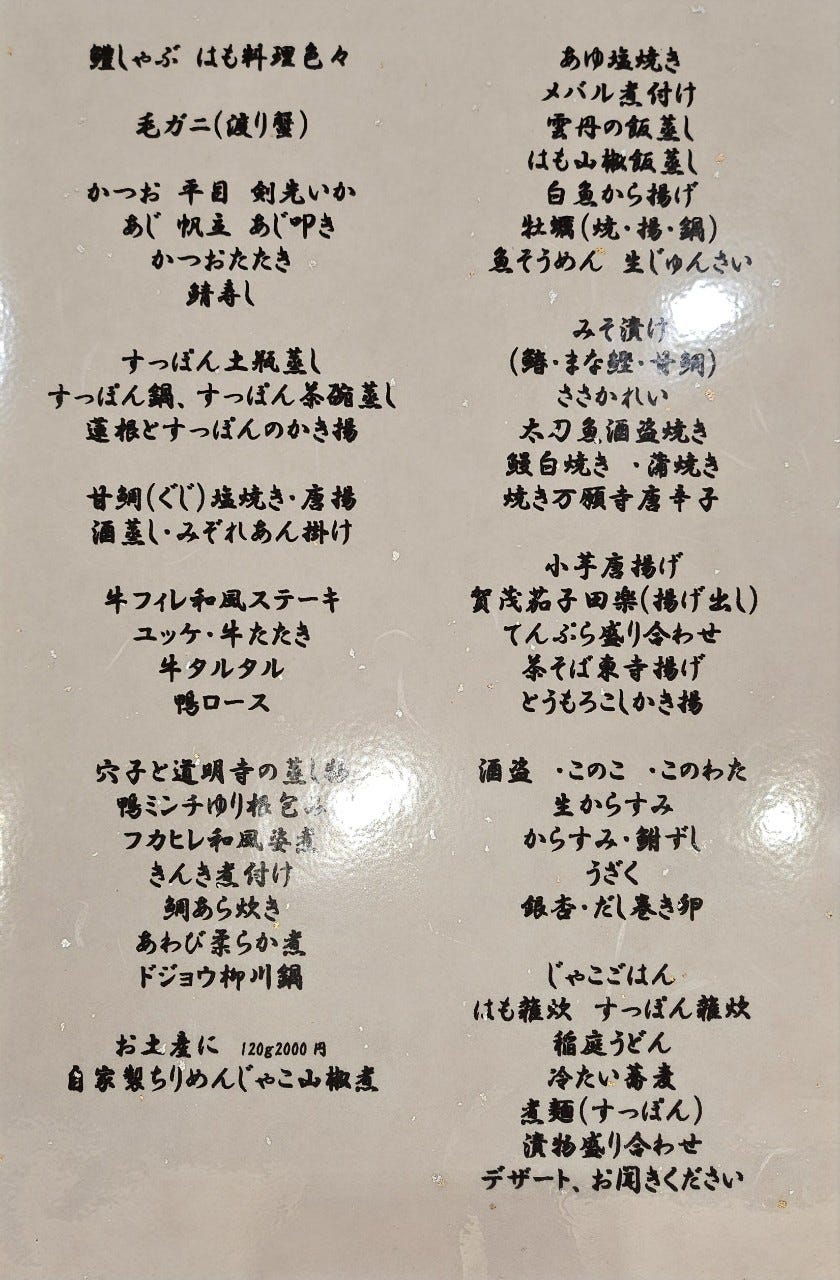 鱧しゃぶ はも料理色々
毛ガニ(渡り蟹)
かつお 平目 剣光いか
あじ 帆立 あじ叩き
かつおたたき
鯖寿し
すっぽん土瓶蒸し
すっぽん鍋、すっぽん茶碗蒸し
蓮根とすっぽんのかき揚
甘鯛(ぐじ)塩焼き・唐揚
酒蒸し・みぞれあん掛け
牛フィレ和風ステーキ
ユッケ・牛たたき
牛タルタル
鴨ロース
穴子と道明寺の蒸し物
鴨ミンチゆり根包み
フカヒレ和風姿煮
きんき煮付け
鯛あら炊き
あわび柔らか煮
ドジョウ柳川鍋
お土産に 120g2000円
自家製ちりめんじゃこ山椒煮
あゆ塩焼き
メバル煮付け
雲丹の飯蒸し
はも山椒飯蒸し
白魚から揚げ
牡蠣(焼・揚・鍋)
魚そうめん 生じゅんさい
みそ漬け
(鰆・まな鰹・甘鯛)
ささかれい
太刀魚酒盗焼き
鰻白焼き ・蒲焼き
焼き万願寺唐辛子
小芋唐揚げ
賀茂茄子田楽(揚げ出し)
てんぷら盛り合わせ
茶そば東寺揚げ
とうもろこしかき揚
酒盗 ・このこ ・このわた
生からすみ
からすみ・鮒ずし
うざく
銀杏・だし巻き卵
じゃこごはん
はも雑炊 すっぽん雑炊
稲庭うどん
冷たい蕎麦
煮麺(すっぽん)
漬物盛り合わせ
デザート、お聞きください